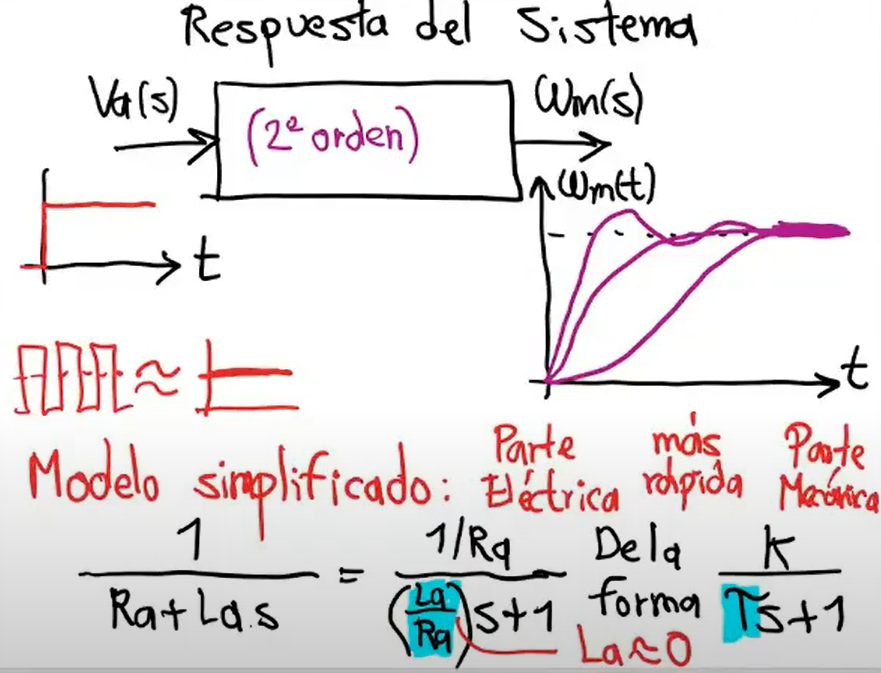 Respuesta del Sistema
Va(s)
(2º orden)
Wm(s)
Wm(t)
t
t
≈
Modelo simplificado: Parte Eléctrica más rápida Parte Mecánica
1 / (Ra + La.s) = (1/Ra) / ((La/Ra)s+1) De la forma K / (Ts+1)
La≈0